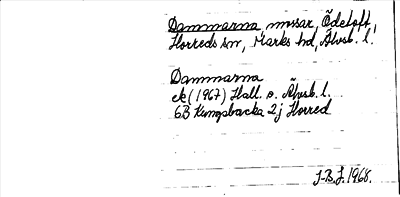 Dammarna mossar, Ödetoft,
Horreds sn, Marks hd, Älvsb. l.
Dammarna
ek (1967) Hall. o. Älvsb. l.
6B Kungsbacka 2j Horred
J-B. J. 1968.